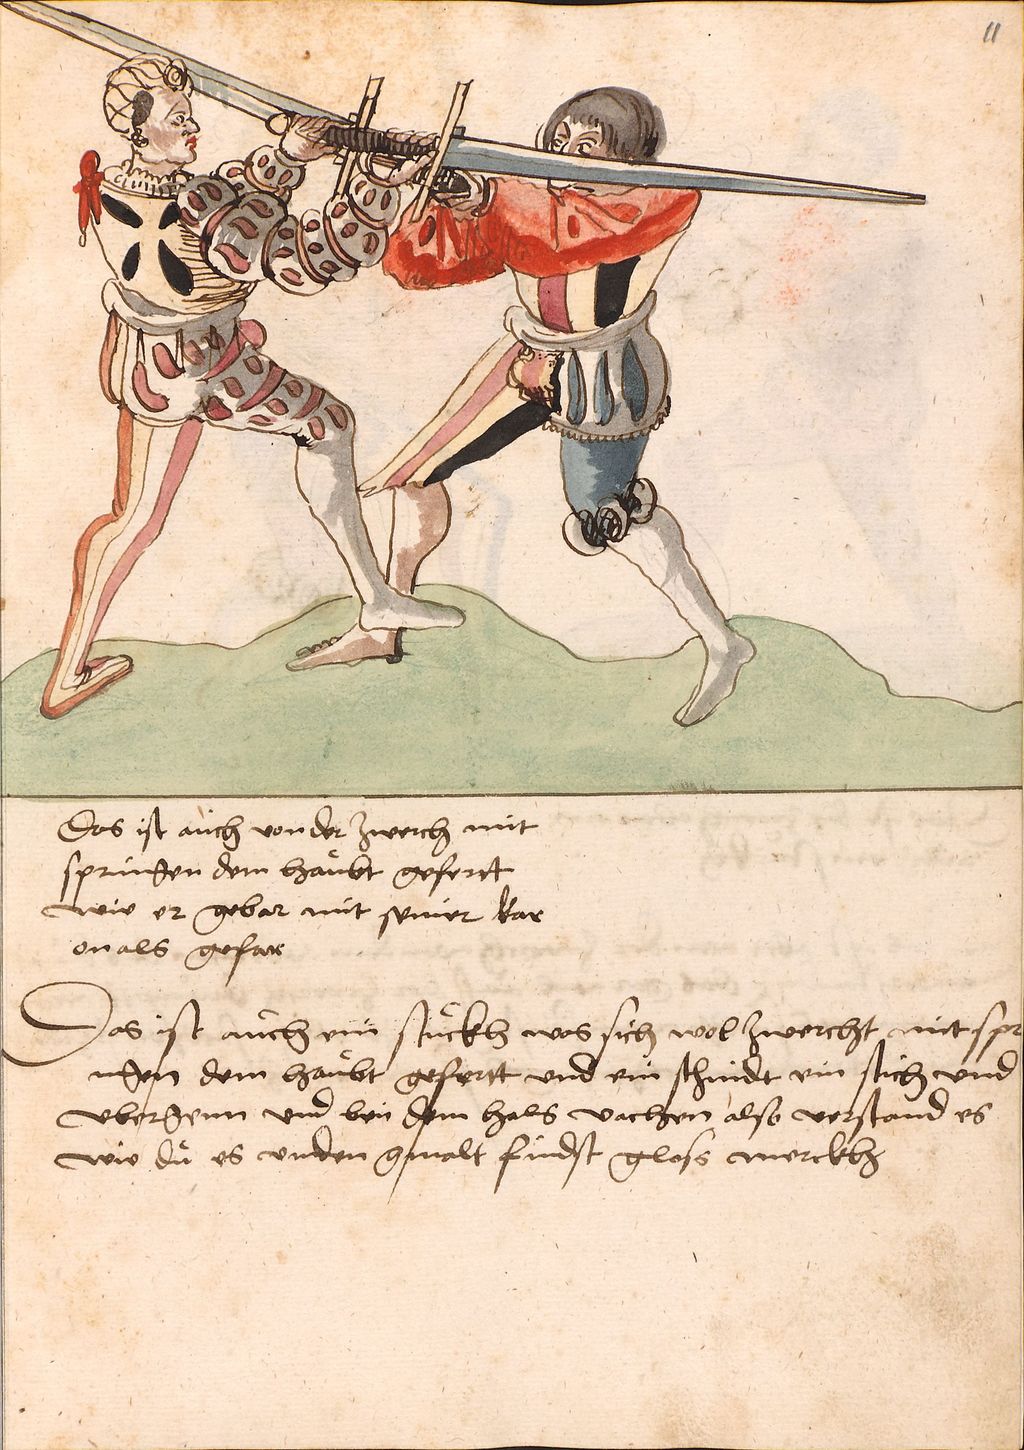 11
Das ist auch von der zwerch mit
springen dem haubt gefertt
wie er gebar mit seiner kar
on als gefar
Das ist auch ein stuckh was sich wol zwercht mit spr
ingen dem haubt gefertt und ein schnidt ein stich und
ubergenn und bei dem hals vachen also verstand es
wie du es unden gmalt findst gloss merckh